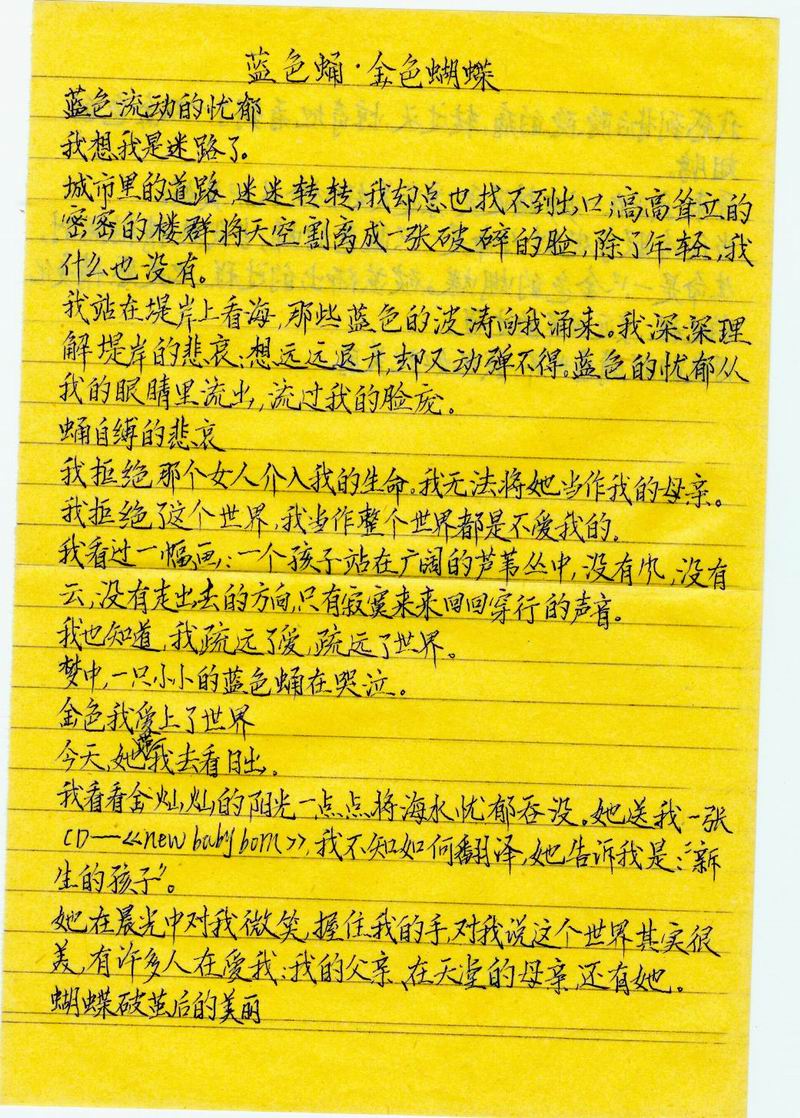 蓝色蛹·金色蝴蝶
蓝色流动的忧郁
我想我是迷路了。
城市里的道路,迷迷转转,我却总也找不到出口;高高耸立的
密密的楼群将天空割离成一张破碎的脸,除了年轻,我
什么也没有。
我站在堤岸上看海,那些蓝色的波涛向我涌来。我深深理
解堤岸的悲哀:想远远退开,却又动弹不得。蓝色的忧郁从
我的眼睛里流出,流过我的脸庞。
蛹自缚的悲哀
我拒绝那个女人介入我的生命。我无法将她当作我的母亲。
我拒绝了这个世界,我当作整个世界都是不爱我的。
我看过一幅画:一个孩子站在广阔的芦苇丛中,没有风,没有
云,没有走出去的方向,只有寂寞来来回回穿行的声音。
我也知道,我疏远了爱,疏远了世界。
梦中,一只小小的蓝色蛹在哭泣。
金色我爱上了世界
今天,她带我去看日出。
我看着金灿灿的阳光一点点将海水忧郁吞没。她送我一张
CD—《new baby born》,我不知如何翻泽,她告诉我是:“新
生的孩子”。
她在晨光中对我微笑,握住我的手,对我说这个世界其实很
美,有许多人在爱我:我的父亲、在天堂的母亲,还有她。
蝴蝶破茧后的美丽